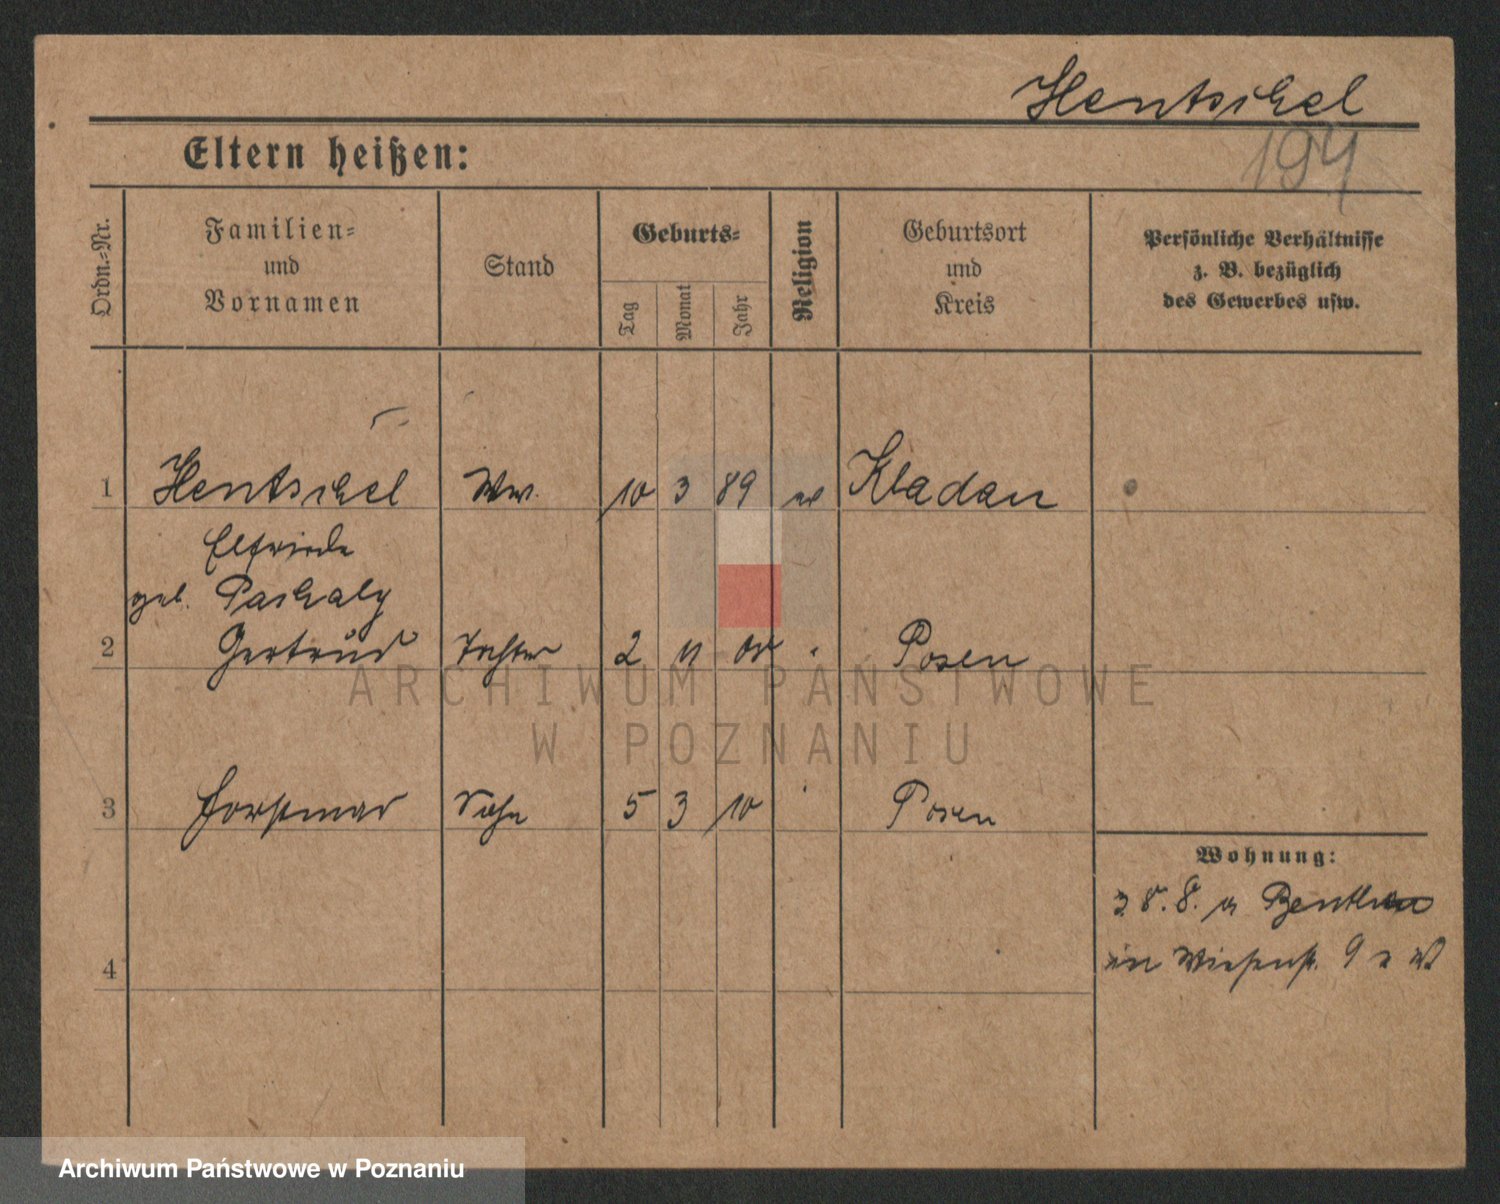 Hentschel
194
Eltern heißen:
Ordn.-Nr.
Familien-
und
Vornamen
Stand
Geburts-
Tag
Monat
Jahr
Religion
Geburtsort
und
Kreis
Persönliche Verhältnisse
z. B. bezüglich
des Gewerbes usw.
1 Hentschel Ww. 10 3 89 ev Kladau
Elfriede
geb. Paschaly
2 Gertrud Tochter 2 11 08 " Posen
3 Sohn 5 3 10 " Posen
Wohnung:
3. 8. 8. a
in Wiesenstr. 9
4
ARCHIWUM PAŃSTWOWE
W POZNANIU
Archiwum Państwowe w Poznaniu